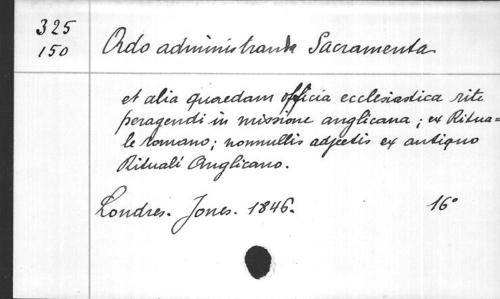 325
150
Ordo administrandi Sacramenta
et alia quaedam officia ecclesiastica rite
peragendi in missione anglicana; ex Ritua=
le romano; nonnullis adjectis ex antiquo
Rituali Anglicano.
Londres. Jones. 1846. 16°